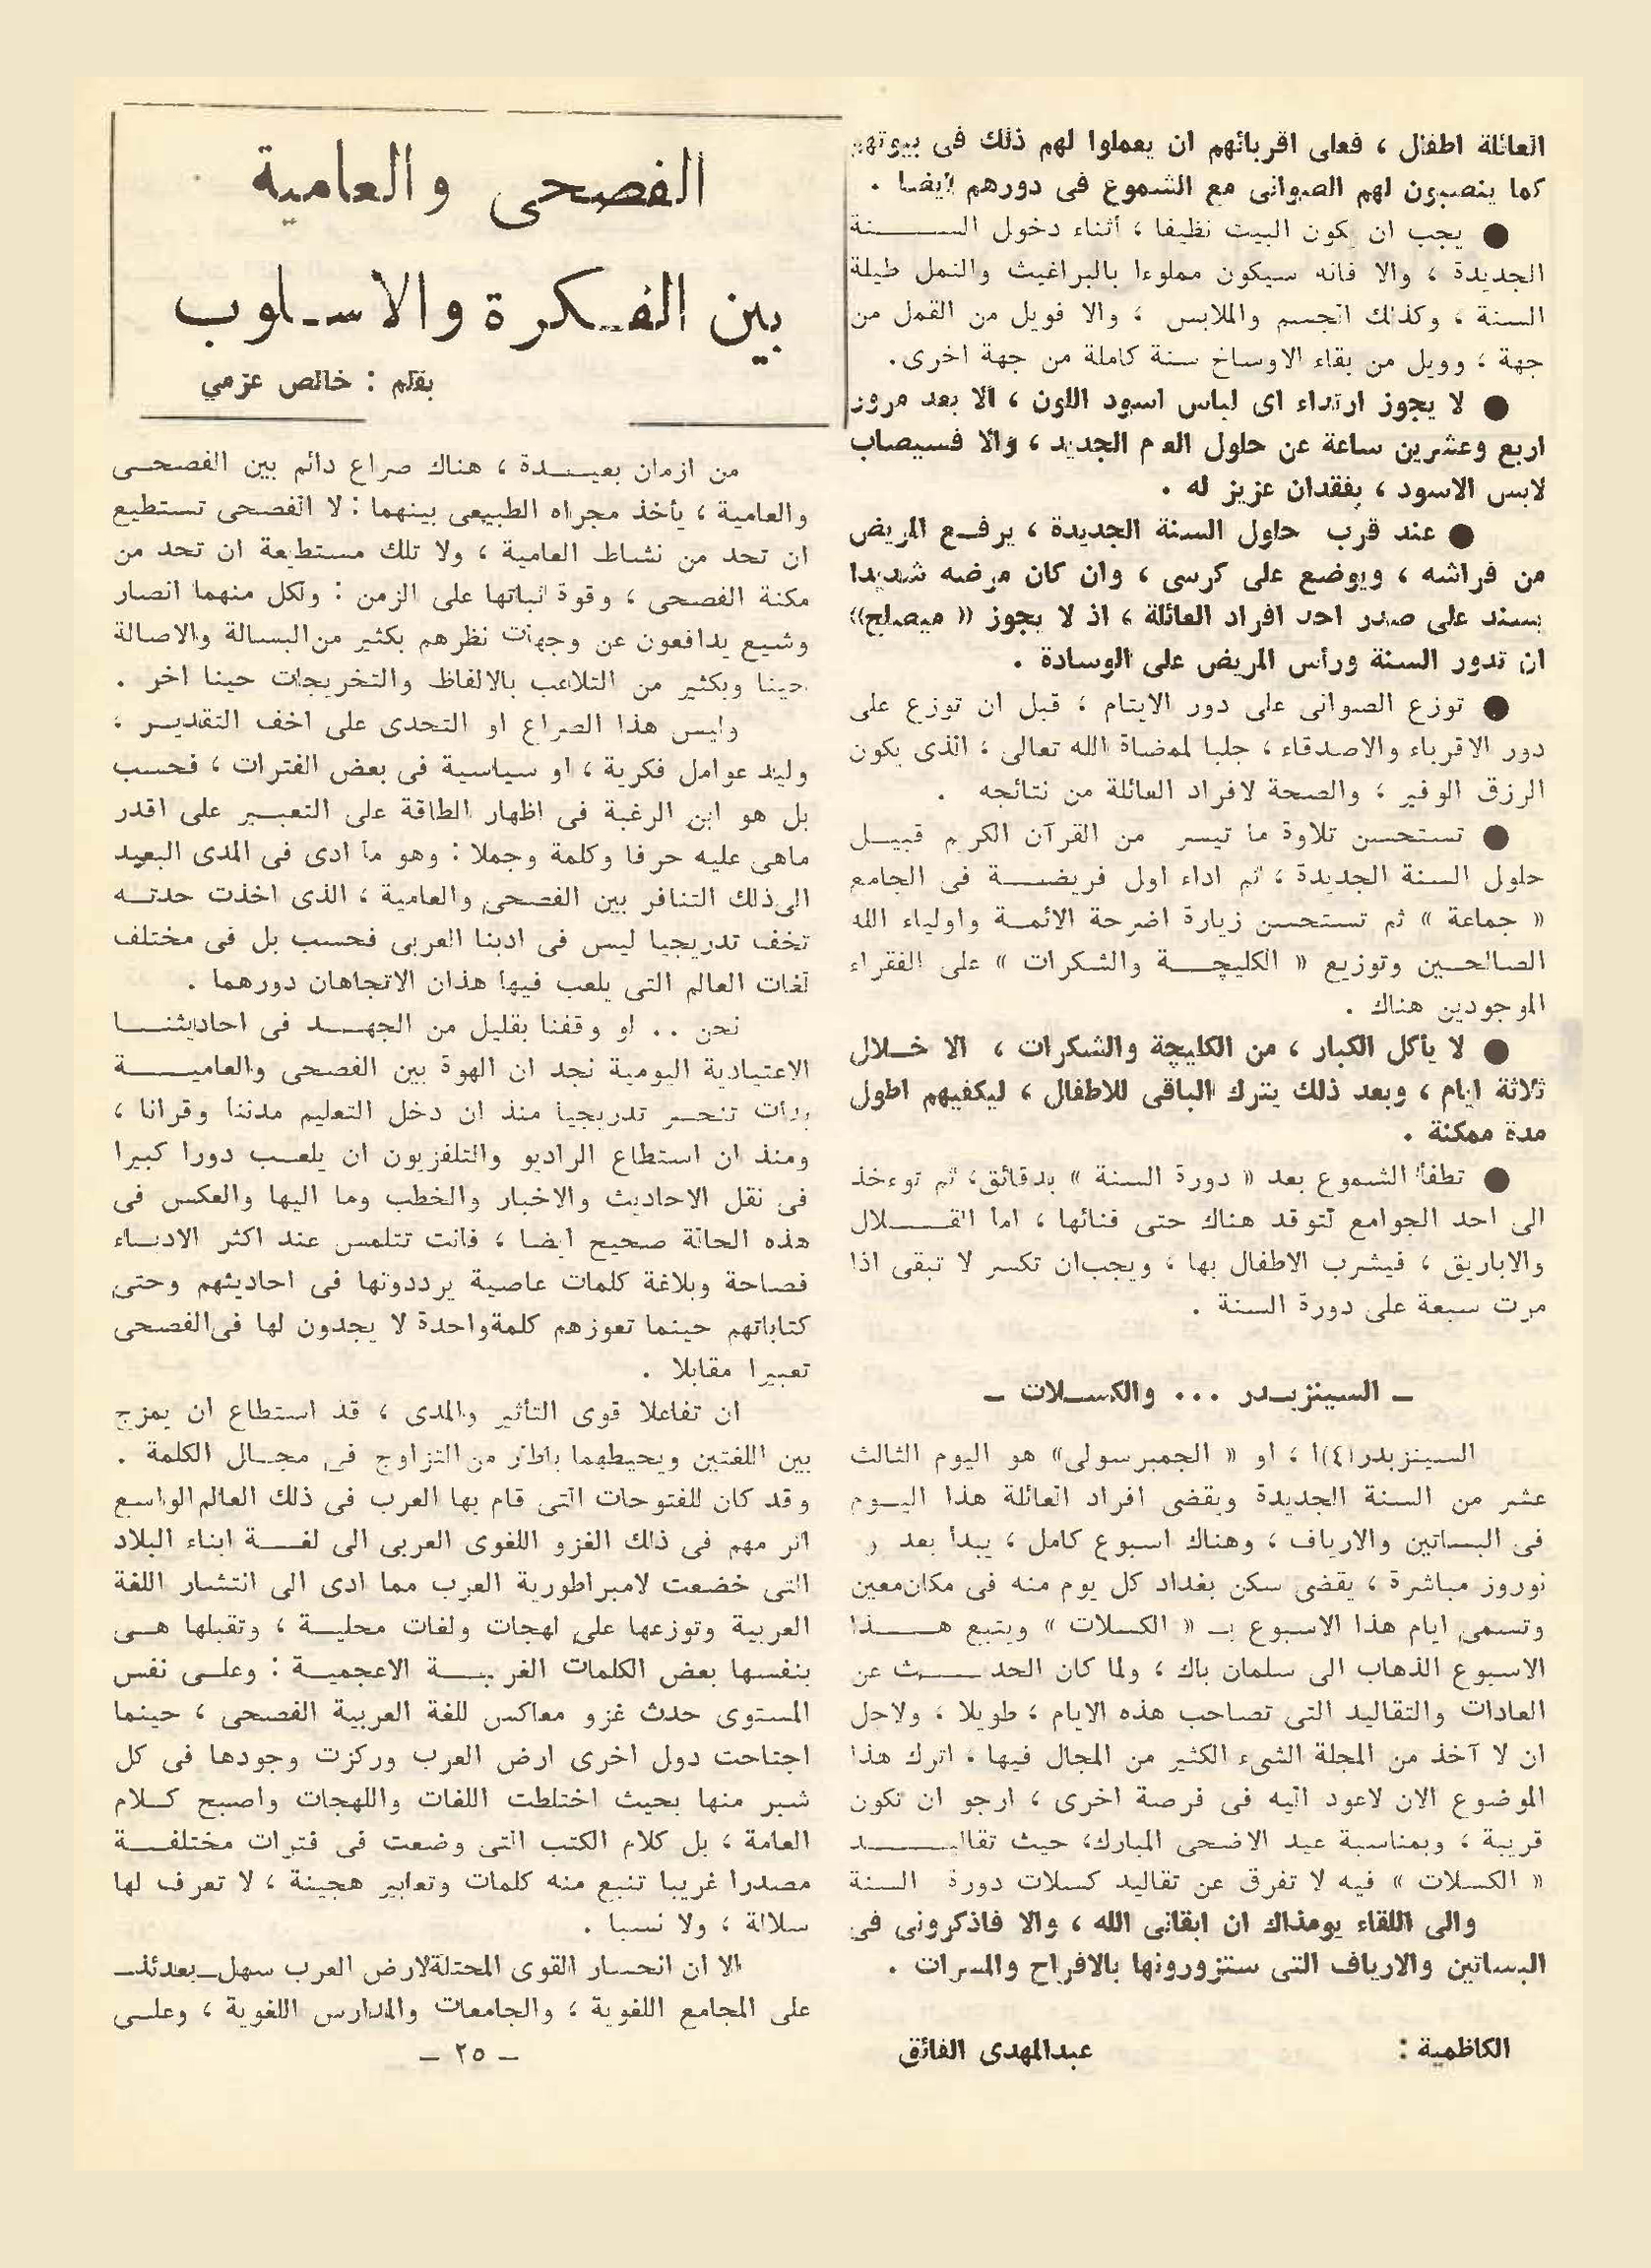 العائلة اطفال ، فعلى اقربائهم ان يعملوا لهم ذلك فى بيوتهم
كما ينصبون لهم الصوانى مع الشموع فى دورهم ايضا .
● يجب ان يكون البيت نظيفا ، أثناء دخول الســـنة
الجديدة ، والا فانه سيكون مملوءا بالبراغيث والنمل طيلة
السنة ، وكذلك الجسم والملابس ، والا فويل من القمل من
جهة ، وويل من بقاء الاوساخ سنة كاملة من جهة اخرى.
● لا يجوز ارتداء اى لباس اسود اللون ، الا بعد مرور
اربع وعشرين ساعة عن حلول العام الجديد ، والا فسيصاب
لابس الاسود ، بفقدان عزيز له .
● عند قرب حلول السنة الجديدة ، يرفـع المريض
من فراشه ، ويوضع على كرسى ، وان كان مرضه شديدا
يسند على صدر احد افراد العائلة ، اذ لا يجوز « ميصلح»
ان تدور السنة ورأس المريض على الوسادة .
● توزع الصوانى على دور الايتام ، قبل ان توزع على
دور الاقرباء والاصدقاء ، جلبا لمرضاة الله تعالى ، الذى يكون
الرزق الوفير ، والصحة لافراد العائلة من نتائجه .
● تستحسن تلاوة ما تيسر من القرآن الكريم قبيـل
حلول السنة الجديدة ، ثم اداء اول فريضـة فى الجامع
« جماعة » ثم تستحسن زيارة اضرحة الائمـة واولياء الله
الصالحـين وتوزيع « الكليچـة والشكرات » على الفقراء
الموجودين هناك .
● لا يأكل الكبار ، من الكليچة والشكرات ، الا خـلال
ثلاثة ايام ، وبعد ذلك يترك الباقى للاطفال ، ليكفيهم اطول
مدة ممكنة .
● تطفأ الشموع بعد « دورة السنة » بدقائق، ثم توءخذ
الى احد الجوامع لتوقد هناك حتى فنائها ، اما القـــلال
والاباريق ، فيشرب الاطفال بها ، ويجب ان تكسر لا تبقى اذا
مرت سبعة على دورة السنة .
ـ السينزبـدر ... والكســلات ـ
السينزبدر(٤) ، او « الجمبرسولى» هو اليوم الثالث
عشر من السنة الجديدة ويقضى افراد العائلة هذا اليـوم
فى البساتين والارياف ، وهناك اسبوع كامل ، يبدأ بعد
نوروز مباشرة ، يقضى سكن بغداد كل يوم منه فى مكان معين
وتسمى ايام هذا الاسبوع بـ « الكسلات » ويتبع هـــذا
الاسبوع الذهاب الى سلمان باك ، ولما كان الحديـــث عن
العادات والتقاليد التى تصاحب هذه الايام ، طويلا ، ولاجل
ان لا آخذ من المجلة الشىء الكثير من المجال فيها ، اترك هذا
الموضوع الان لاعود اليه فى فرصة اخرى ، ارجو ان تكون
قريبة ، وبمناسبة عيد الاضحى المبارك، حيث تقاليـــد
« الكسلات » فيه لا تفرق عن تقاليد كسلات دورة السنة
والى اللقاء يومذاك ان ابقانى الله ، والا فاذكرونى فى
البساتين والارياف التى ستزورونها بالافراح والمسرات .
الكاظمية : عبدالمهدى الفائق
الفصحى والعامية
بين الفـكرة والاسـلوب
بقلم : خالص عزمي
من ازمان بعيــدة ، هناك صراع دائم بين الفصحـى
والعامية ، يأخذ مجراه الطبيعى بينهما : لا الفصحى تستطيع
ان تحد من نشاط العامية ، ولا تلك مستطيعة ان تحد من
مكنة الفصحى ، وقوة ثباتها على الزمن : ولكل منهما انصار
وشيع يدافعون عن وجهات نظرهم بكثير من البسالة والاصالة
حينا وبكثير من التلاعب بالالفاظ والتخريجات حينا اخر .
وليس هذا الصراع او التحدى على اخف التقديـر ،
وليد عوامل فكرية ، او سياسية فى بعض الفترات ، فحسب
بل هو ابن الرغبة فى اظهار الطاقة على التعبـير على اقدر
ماهى عليه حرفا وكلمة وجملا : وهو ما ادى فى المدى البعيد
الى ذلك التنافر بين الفصحى والعامية ، الذى اخذت حدتـه
تخف تدريجيا ليس فى ادبنا العربى فحسب بل فى مختلف
لغات العالم التى يلعب فيها هذان الاتجاهان دورهما .
نحن .. لو وقفنا بقليل من الجهــد فى احاديثنــا
الاعتيادية اليومية نجد ان الهوة بين الفصحى والعاميــة
بدأت تنحـسر تدريجيا منذ ان دخل التعليم مدننا وقرانا ،
ومنذ ان استطاع الراديو والتلفزيون ان يلعـب دورا كبيرا
فى نقل الاحاديث والاخبار والخطب وما اليها والعكس فى
هذه الحالة صحيح ايضا ، فانت تتلمس عند اكثر الادبـاء
فصاحة وبلاغة كلمات عاصية يرددونها فى احاديثهم وحتى
كتاباتهم حينما تعوزهم كلمة واحدة لا يجدون لها فى الفصحى
تعبيرا مقابلا .
ان تفاعلا قوى التأثير والمدى ، قد استطاع ان يمزج
بين اللغتين ويحيطهما باطار من التزاوج فى مجـال الكلمة .
وقد كان للفتوحات التى قام بها العرب فى ذلك العالم الواسع
اثر مهم فى ذلك الغزو اللغوى العربى الى لغــة ابناء البلاد
التى خضعت لامبراطورية العرب مما ادى الى انتشار اللغة
العربية وتوزعها على لهجات ولغات محليـة ، وتقبلها هـى
بنفسها بعض الكلمات الغريبــة الاعجميـة : وعلـى نفس
المستوى حدث غزو معاكس للغة العربية الفصحى ، حينما
اجتاحت دول اخرى ارض العرب وركزت وجودها فى كل
شبر منها بحيث اختلطت اللغات واللهجات واصبح كـلام
العامة ، بل كلام الكتب التى وضعت فى فترات مختلفـة
مصدرا غريبا تنبع منه كلمات وتعابير هجينة ، لا تعرف لها
سلالة ، ولا نسبا .
الا ان انحسار القوى المحتلة لارض العرب سهل ـ بعدئذ ـ
على المجامع اللغوية ، والجامعات والمدارس اللغوية ، وعلـى
ـ ٢٥ ـ